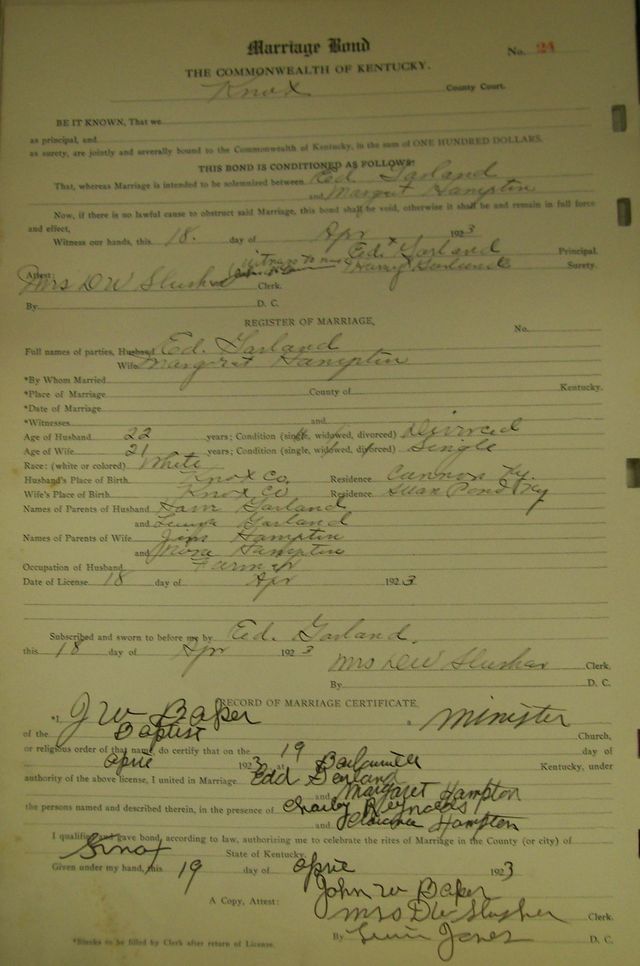 Marriage Bond
No. 24
THE COMMONWEALTH OF KENTUCKY.
Knox County Court.
BE IT KNOWN, That we
as principal, and
as surety, are jointly and severally bound to the Commonwealth of Kentucky, in the sum of ONE HUNDRED DOLLARS.
THIS BOND IS CONDITIONED AS FOLLOWS:
That, whereas Marriage is intended to be solemnized between Ed. Garland
and Margret Hamptin
Now, if there is no lawful cause to obstruct said Marriage, this bond shall be void, otherwise it shall be and remain in full force
and effect,
Witness our hands, this 18. day of Apr 1923
Ed. x Garland Principal.
witness to mark Surety.
Attest:
Mrs D W Slusher Clerk.
By D. C.
REGISTER OF MARRIAGE,
No.
Full names of parties, Husband Ed. Garland
Wife Margret Hamptin
*By Whom Married
*Place of Marriage County of Kentucky.
*Date of Marriage
*Witnesses and
Age of Husband 22 years; Condition (single, widowed, divorced) Divorced
Age of Wife 21 years; Condition (single, widowed, divorced) Single
Race: (white or colored) White
Husband's Place of Birth Knox Co, Residence Cannon Ky.
Wife's Place of Birth Knox Co Residence Swan Pond Ky
Names of Parents of Husband Sam Garland
and Garland
Names of Parents of Wife Jim Hamptin
and Hamptin
Occupation of Husband Farmer
Date of License 18 day of Apr 1923
Subscribed and sworn to before me by Ed. Garland.
this 18 day of Apr 1923
Mrs D W Slusher Clerk.
By D. C.
RECORD OF MARRIAGE CERTIFICATE.
*I, J W Baker a minister
of the Baptist Church,
or religious order of that name, do certify that on the 19 day of
april 1923 at Kentucky, under
authority of the above license, I united in Marriage Edd Garland
and Margaret Hampton
the persons named and described therein, in the presence of Charley Reynolds
and Hampton
I qualified and gave bond, according to law, authorizing me to celebrate the rites of Marriage in the County (or city) of
Knox State of Kentucky.
Given under my hand, this 19 day of aprie 1923
John W Baker
A Copy, Attest: Mrs D W Slusher Clerk.
By Jones D. C.
*Blanks to be filled by Clerk after return of License.